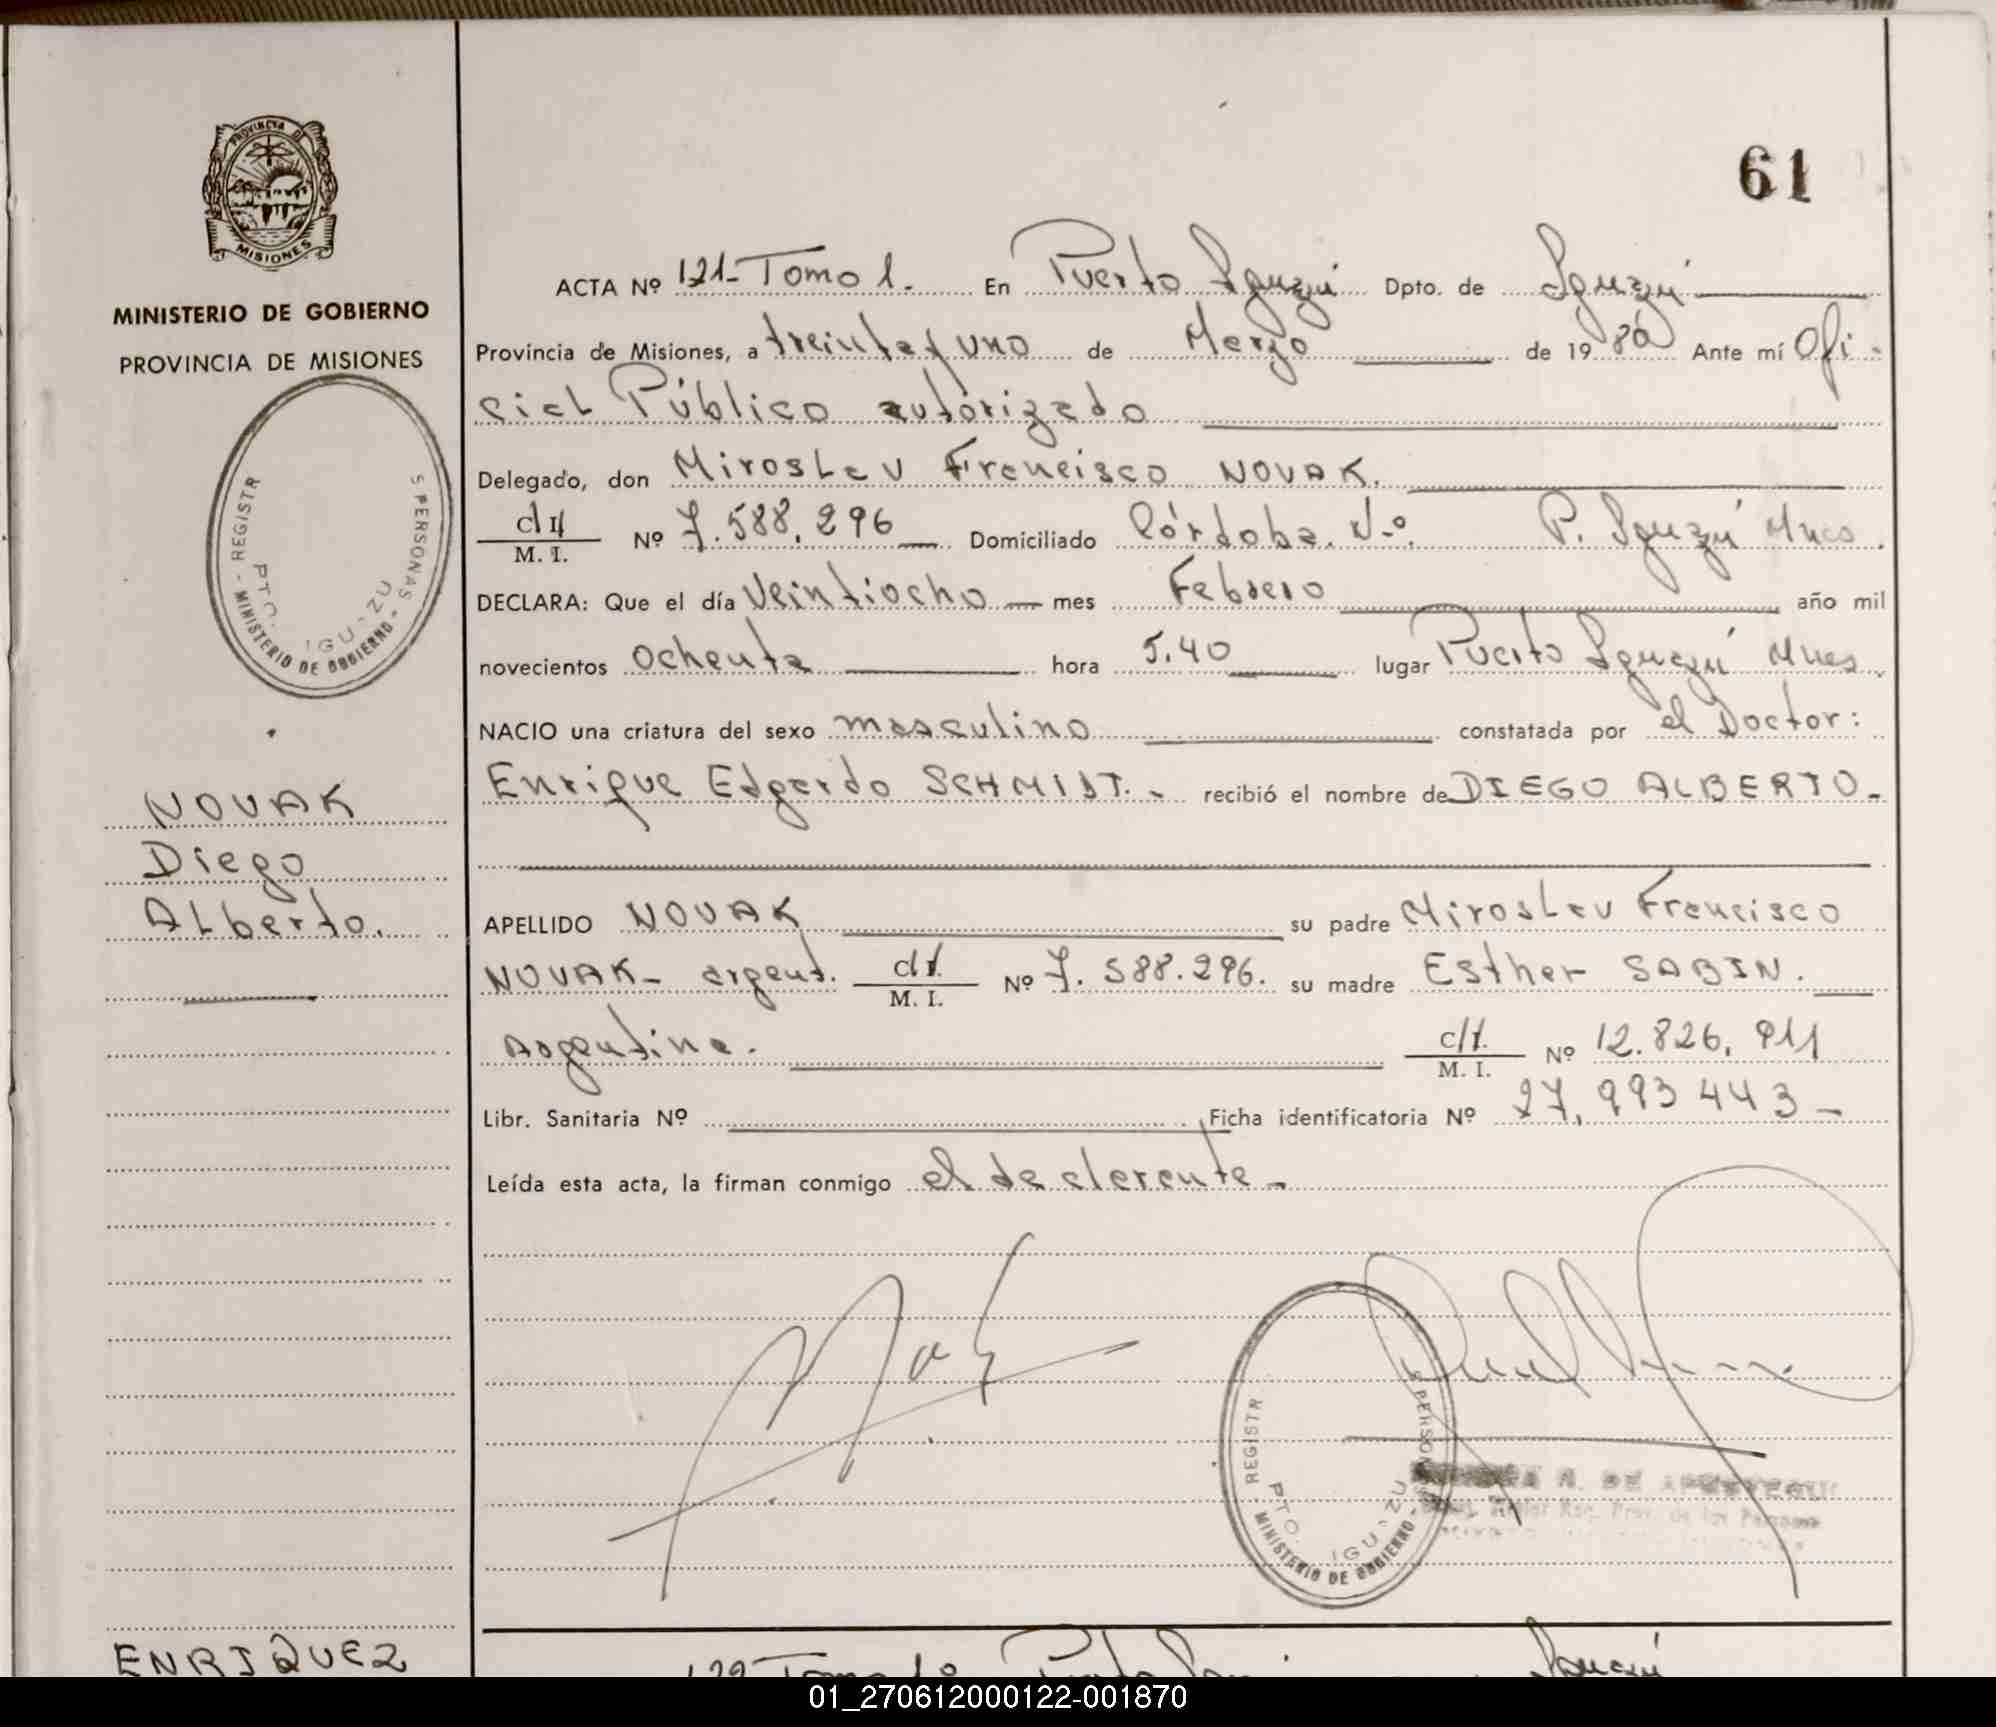 PROVINCIA DE
MISIONES
MINISTERIO DE GOBIERNO
PROVINCIA DE MISIONES
REGISTR S PERSONAS
PTO. IGU ZU
MINISTERIO DE GOBIERNO
NOVAK
Diego
Alberto.
61
ACTA Nº 121-Tomo 1. En Puerto Iguazú Dpto. de Iguazú
Provincia de Misiones, a treinta y uno de Marzo de 1980 Ante mí Ofi-
cial Público autorizado
Delegado, don Miroslav Francisco NOVAK.
M. I. Nº 7.588.296 Domiciliado Córdoba. Nº. P. Iguazú Mnes.
DECLARA: Que el día veintiocho mes Febrero año mil
novecientos ochenta hora 5.40 lugar Puerto Iguazú Mnes
NACIO una criatura del sexo masculino constatada por el Doctor:
Enrique Edgardo SCHMIDT. - recibió el nombre de DIEGO ALBERTO.-
APELLIDO NOVAK su padre Miroslav Francisco
NOVAK- argent. M. I. Nº 7.588.296. su madre Esther SABIN.
Argentina. M. I. Nº 12.826.911
Libr. Sanitaria Nº Ficha identificatoria Nº 27.993443-
Leída esta acta, la firman conmigo el declarante-
REGISTR S PERSONAS
PTO. IGU ZU
MINISTERIO DE GOBIERNO
ENRIQUEZ
122-Tomo 1º Puerto Iguazú Iguazú
01_270612000122-001870